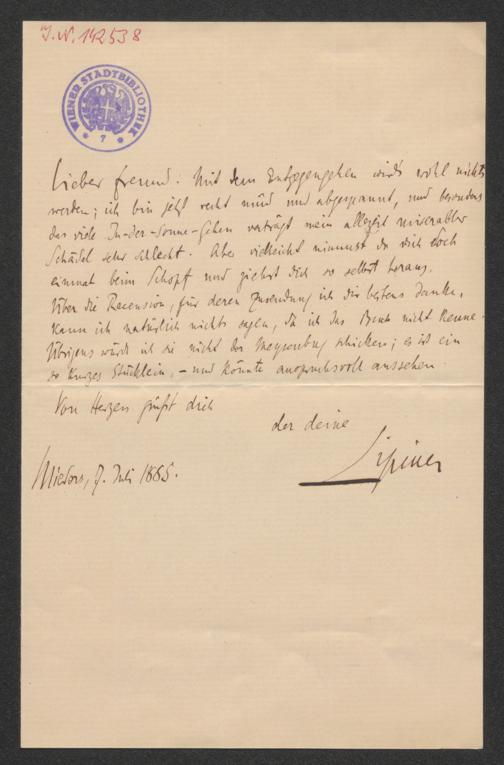 J. N. 142538
WIENER STADTBIBLIOTHEK
* 7 *
Lieber Freund! Mit dem Entgegengehen wird's wohl nichts
werden; ich bin jetzt recht müd und abgespannt, und besonders
das viele In-der-Sonne-Gehen verträgt mein allezeit miserabler
Schädel sehr schlecht. Aber vielleicht nimmst du dich doch
einmal beim Schopf und ziehst dich so selbst heraus.
Über die Recension, für deren Zusendung ich dir bestens danke,
kann ich natürlich nichts sagen, da ich das Buch nicht kenne.
Übrigens würde ich sie nicht der Meysenbug schicken; es ist ein
so kurzes Stücklein, – und könnte anspruchsvoll aussehen.
Von Herzen grüßt dich
der deine
Lipiner
, 7. Juli 1885.